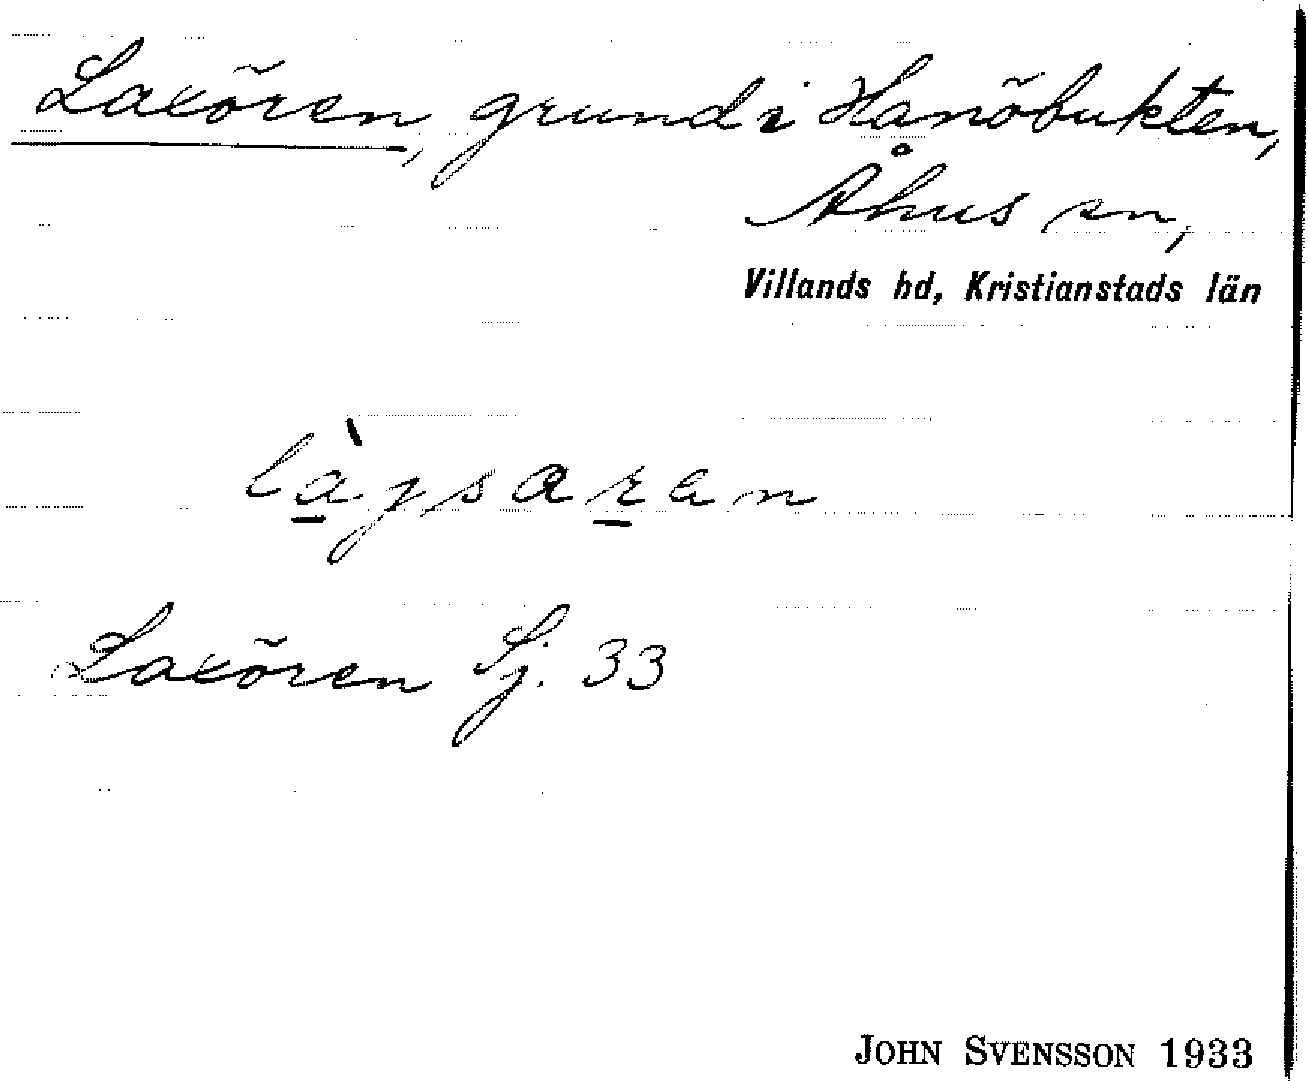 Laxören, grund i Hanöbukten,
Åhus sn,
Villands hd, Kristianstads län
làgsaran
Laxören Sj. 33
JOHN SVENSSON 1933